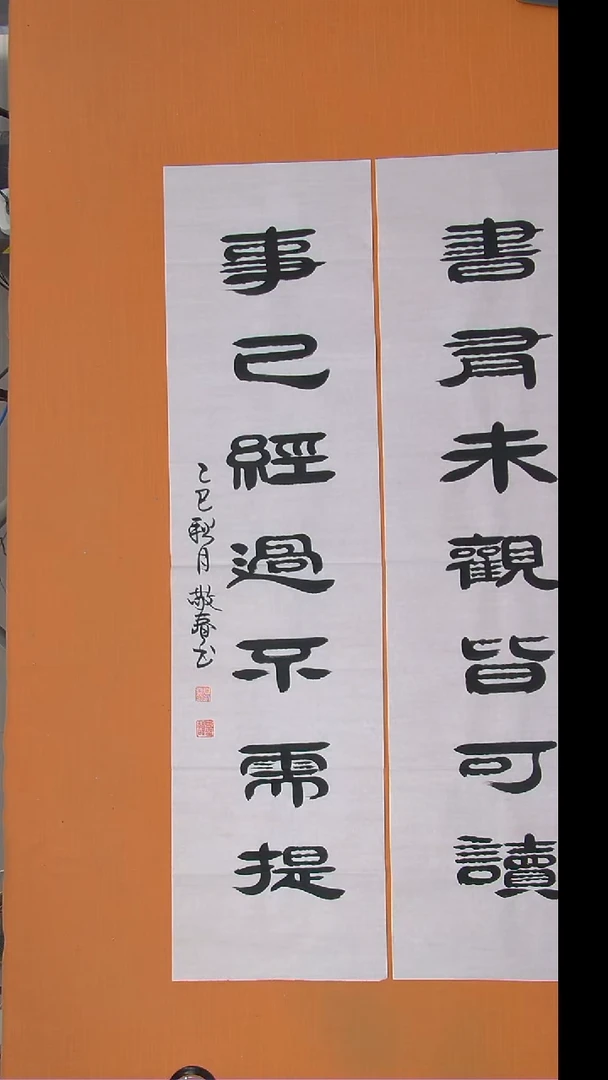 書有未觀皆可讀
事已經過不需提
乙巳秋月敬春书